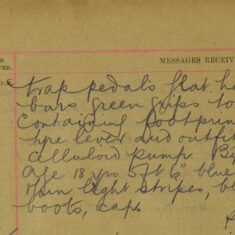 MESSAGES RECEIV
trap pedals flat ha
bars green grips to
Containing footprin
tyre lever and outfit
celluloid pump. Bi
age 18 yrs 5ft 6" blue
thin light stripes, bl
boots, cap.